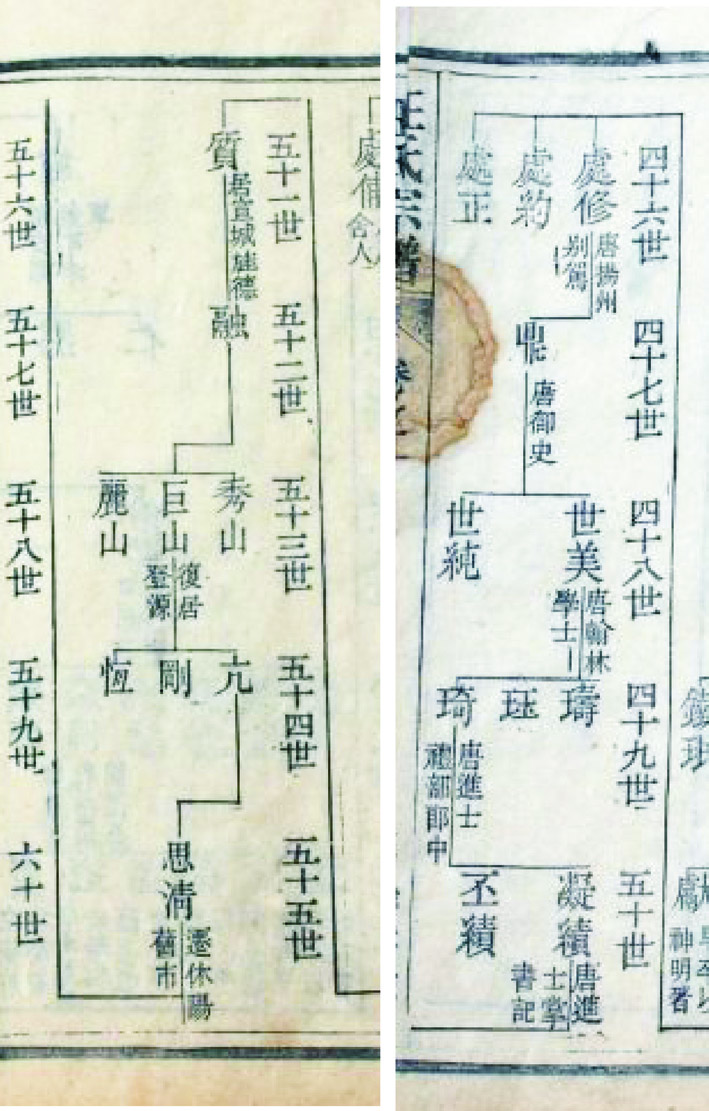 汪氏宗譜
四十六世
處修
唐揚州
別駕
處約
處正
四十七世
鼎
唐御史
四十八世
世美
唐翰林
學士
世純
四十九世
璹
珏
琦
唐進士
禮部郎中
五十世
凝績
唐進
士掌
書記
丕績
神明
舍人
五十一世
質
居宣城旌德
五十二世
融
五十三世
秀山
巨山
復居
麗山
五十四世
亢
剛
恆
五十五世
思淸
遷休陽
舊市
五十六世
五十七世
五十八世
五十九世
六十世